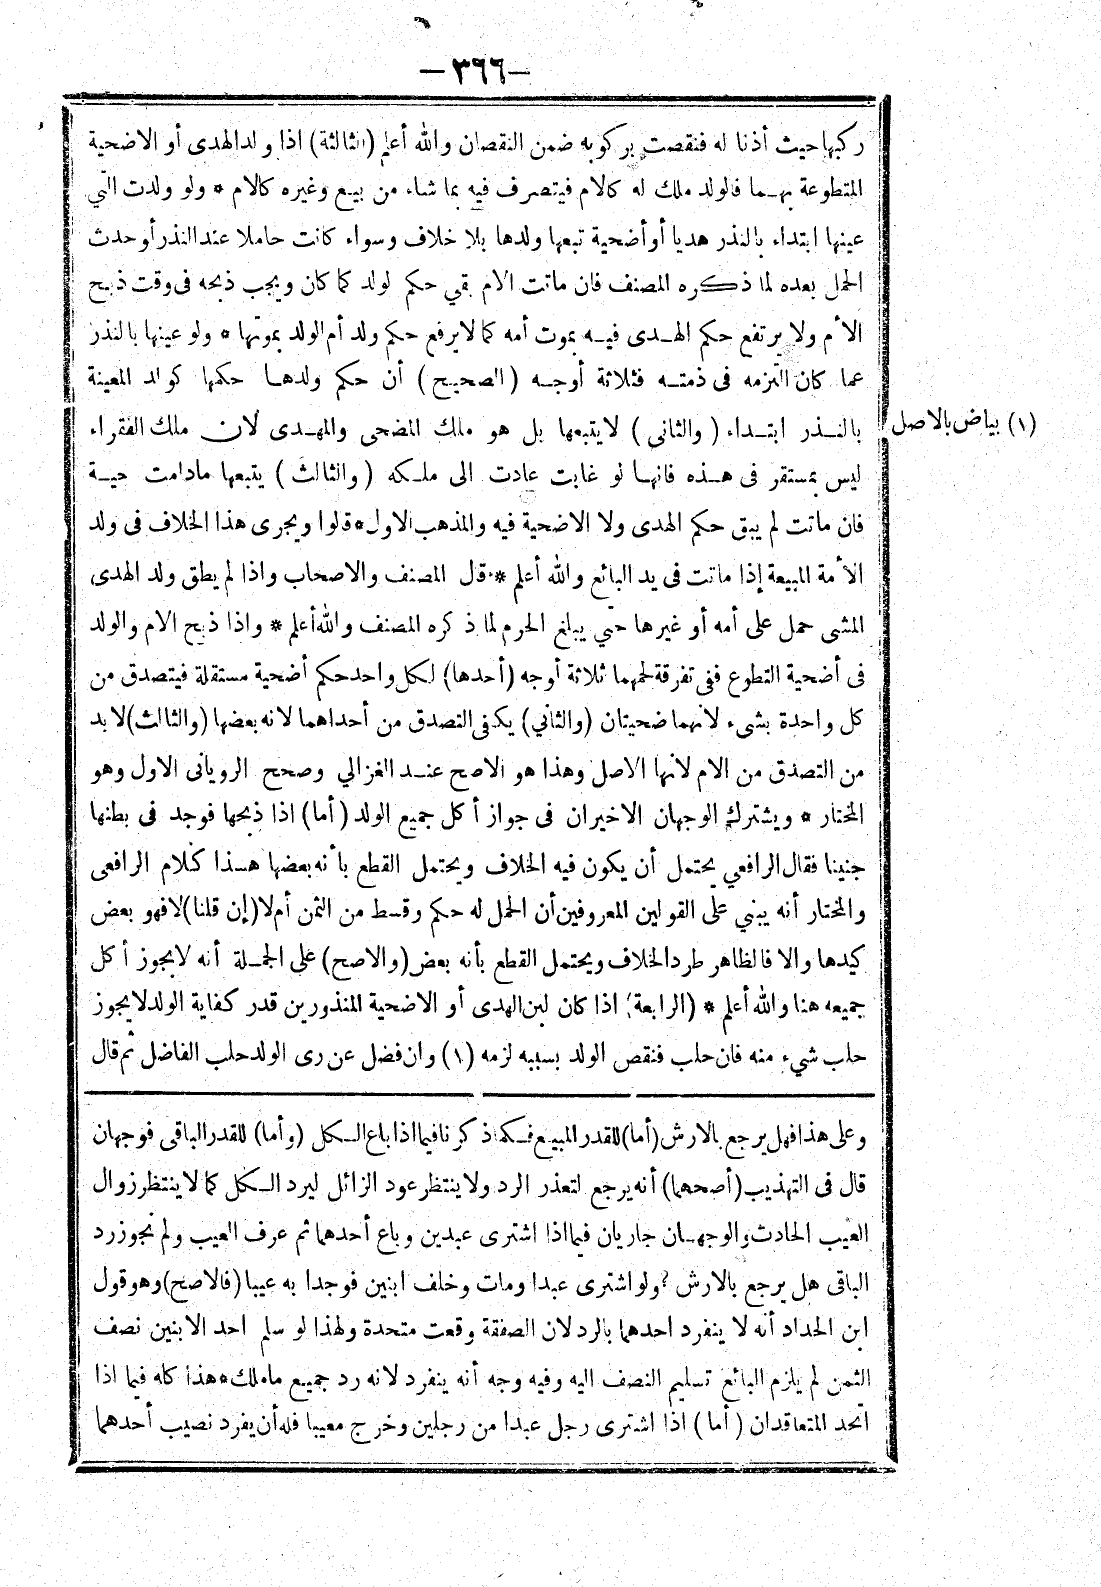 —٣٦٦—
ركبها حيث أذنا له فنقصت بركوبه ضمن النقصان والله أعلم (الثالثة) اذا ولد الهدى أو الاضحية
المتطوعة بهما فالولد ملك له كالام فيتصرف فيه بما شاء من بيع وغيره كالام * ولو ولدت التي
عينها ابتداء بالنذر هديا أو أضحية تبعها ولدها بلا خلاف وسواء كانت حاملا عند النذر أو حدث
الحمل بعده لما ذكره المصنف فان ماتت الام بقي حكم لولد كما كان ويجب ذبحه فى وقت ذبح
الأم ولا يرتفع حكم الهدى فيه بموت أمه كما لا يرفع حكم ولد أم الولد بموتها * ولو عينها بالنذر
عما كان التزمه فى ذمته فثلاثة أوجه (الصحيح) أن حكم ولدها حكمها كولد المعينة
بالنذر ابتداء (والثانى) لا يتبعها بل هو ملك المضحى والمهدى لان ملك الفقراء
(١) بياض بالاصل
ليس بمستقر فى هذه فانها لو غابت عادت الى ملكه (والثالث) يتبعها مادامت حية
فان ماتت لم يبق حكم الهدى ولا الاضحية فيه والمذهب الاول * قلوا ويجرى هذا الخلاف فى ولد
الأمة المبيعة إذا ماتت فى يد البائع والله أعلم * قل المصنف والاصحاب واذا لم يطق ولد الهدى
المشى حمل على أمه أو غيرها حتى يبلغ الحرم لما ذكره المصنف والله أعلم * واذا ذبح الام والولد
فى أضحية التطوع ففى تفرقة لحمهما ثلاثة أوجه (أحدها) لكل واحد حكم أضحية مستقلة فيتصدق من
كل واحدة بشىء لانهما ضحيتان (والثاني) يكفى التصدق من أحداهما لانه بعضها (والثالث) لا بد
من التصدق من الام لانها الاصل وهذا هو الاصح عند الغزالي وصحح الرويانى الاول وهو
المختار * ويشترك الوجهان الاخيران فى جواز أكل جميع الولد (أما) اذا ذبحها فوجد فى بطنها
جنينا فقال الرافعي يحتمل أن يكون فيه الخلاف ويحتمل القطع بأنه بعضها هذا كلام الرافعى
والمختار أنه يبني على القولين المعروفين أن الحمل له حكم وقسط من الثمن أم لا (إن قلنا) لا فهو بعض
كيدها والا فالظاهر طرد الخلاف ويحتمل القطع بأنه بعض (والاصح) على الجملة أنه لا يجوز أكل
جميعه هنا والله أعلم * (الرابعة) اذا كان لبن الهدى أو الاضحية المنذورين قدر كفاية الولد لا يجوز
حلب شيء منه فان حلب فنقص الولد بسببه لزمه (١) وان فضل عن رى الولد حلب الفاضل ثم قال
وعلى هذا فهل يرجع بالارش (أما) للقدر المبيع فكما ذكرنا فيما اذا باع الكل (وأما) للقدر الباقى فوجهان
قال فى التهذيب (أصحهما) أنه يرجع لتعذر الرد ولا ينتظر عود الزائل ليرد الكل كما لا ينتظر زوال
العيب الحادث والوجهان جاريان فيما اذا اشترى عبدين وباع أحدهما ثم عرف العيب ولم نجوز رد
الباقى هل يرجع بالارش ? ولو اشترى عبدا ومات وخلف ابنين فوجدا به عيبا (فالاصح) وهو قول
ابن الحداد أنه لا ينفرد احدهما بالرد لان الصفقة وقعت متحدة ولهذا لو سلم احد الابنين نصف
الثمن لم يلزم البائع تسليم النصف اليه وفيه وجه أنه ينفرد لانه رد جميع ماملك * هذا كله فيما اذا
اتحد المتعاقدان (أما) اذا اشترى رجل عبدا من رجلين وخرج معيبا فله أن يفرد نصيب أحدهما